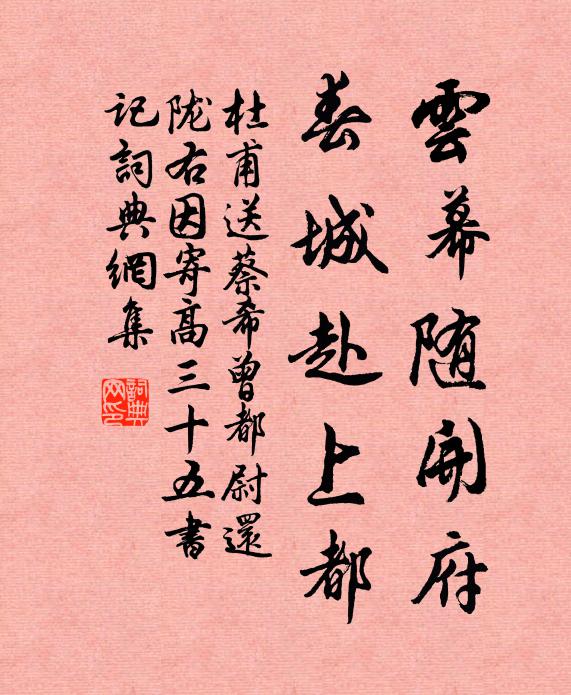 雲幕随開府
春城赴上都
杜甫送蔡希曾都尉還
陇右因寄高三十五書
记詞典網集
詞典网印